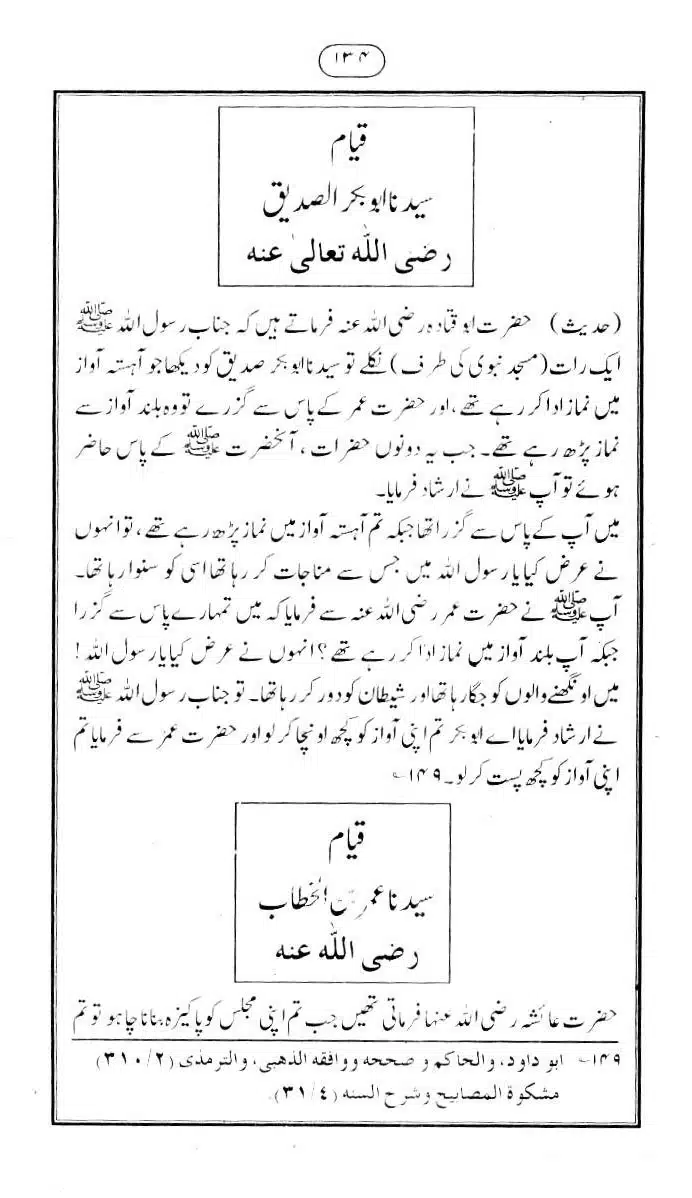 ۱۳۴
قیام
سیدنا ابو بکر الصدیق
رضی اللہ تعالیٰ عنہ
(حدیث) حضرت ابو قتادہ رضی اللہ عنہ فرماتے ہیں کہ جناب رسول اللہ ﷺ
ایک رات (مسجد نبوی کی طرف) نکلے تو سیدنا ابو بکر صدیق کو دیکھا جو آہستہ آواز
میں نماز ادا کر رہے تھے، اور حضرت عمر کے پاس سے گزرے تو وہ بلند آواز سے
نماز پڑھ رہے تھے۔ جب یہ دونوں حضرات، آنحضرت ﷺ کے پاس حاضر
ہوئے تو آپ ﷺ نے ارشاد فرمایا۔
میں آپ کے پاس سے گزرا تھا جبکہ تم آہستہ آواز میں نماز پڑھ رہے تھے، تو انہوں
نے عرض کیا یا رسول اللہ میں جس سے مناجات کر رہا تھا اسی کو سنوا رہا تھا۔
آپ ﷺ نے حضرت عمر رضی اللہ عنہ سے فرمایا کہ میں تمہارے پاس سے گزرا
جبکہ آپ بلند آواز میں نماز ادا کر رہے تھے؟ انہوں نے عرض کیا یا رسول اللہ!
میں اونگھنے والوں کو جگا رہا تھا اور شیطان کو دور کر رہا تھا۔ تو جناب رسول اللہ ﷺ
نے ارشاد فرمایا اے ابو بکر تم اپنی آواز کو کچھ اونچا کر لو اور حضرت عمرؓ سے فرمایا تم
اپنی آواز کو کچھ پست کر لو۔ ۱۴۹؎
قیام
سیدنا عمر بن الخطاب
رضی اللہ عنہ
حضرت عائشہ رضی اللہ عنہا فرماتی تھیں جب تم اپنی مجلس کو پاکیزہ بنانا چاہو تو تم
۱۴۹؎ ابو داود، والحاکم و صححه ووافقه الذهبی، والترمذی (۳۱۰/۲)
مشکوة المصابیح وشرح السنه (۳۱/٤).